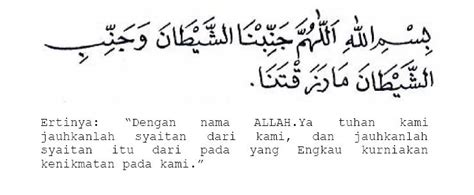 بِسْمِ اللهِ اَللّٰهُمَّ جَنِّبْنَا الشَّيْطَانَ وَجَنِّبِ
الشَّيْطَانَ مَارَزَقْتَنَا.
Ertinya: "Dengan nama ALLAH.Ya tuhan kami
jauhkanlah syaitan dari kami, dan jauhkanlah
syaitan itu dari pada yang Engkau kurniakan
kenikmatan pada kami."